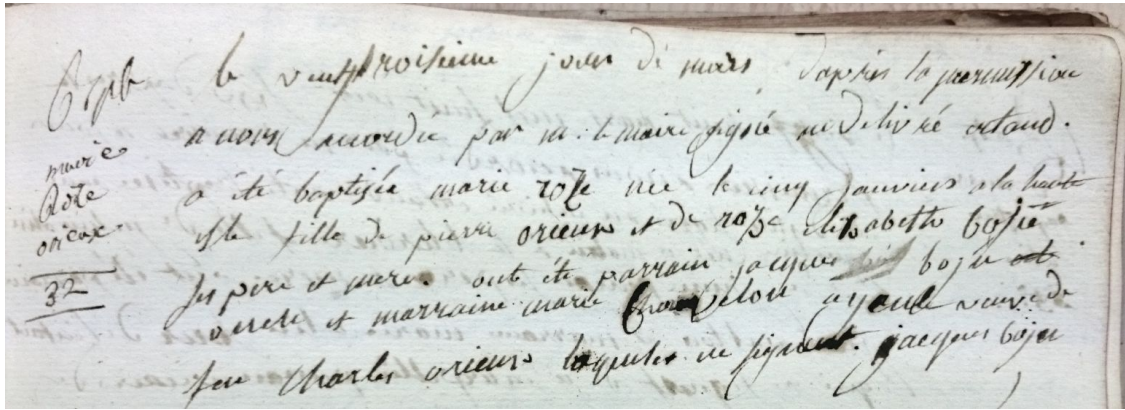 Bapt
marie
Rose
orieux
32
le vingttroisieme jour de mars d'après la permission
a nous accordée par m. le maire signé
a été baptisée marie roze née le cinq janvier a la haute
isle fille de pierre orieux et de roze elisabeth boju
ses pere et mere. ont été parrain jacques boju
oncle et marraine marie ayeule veuve de
feu Charles orieux lesquels ne signent. jacques boju